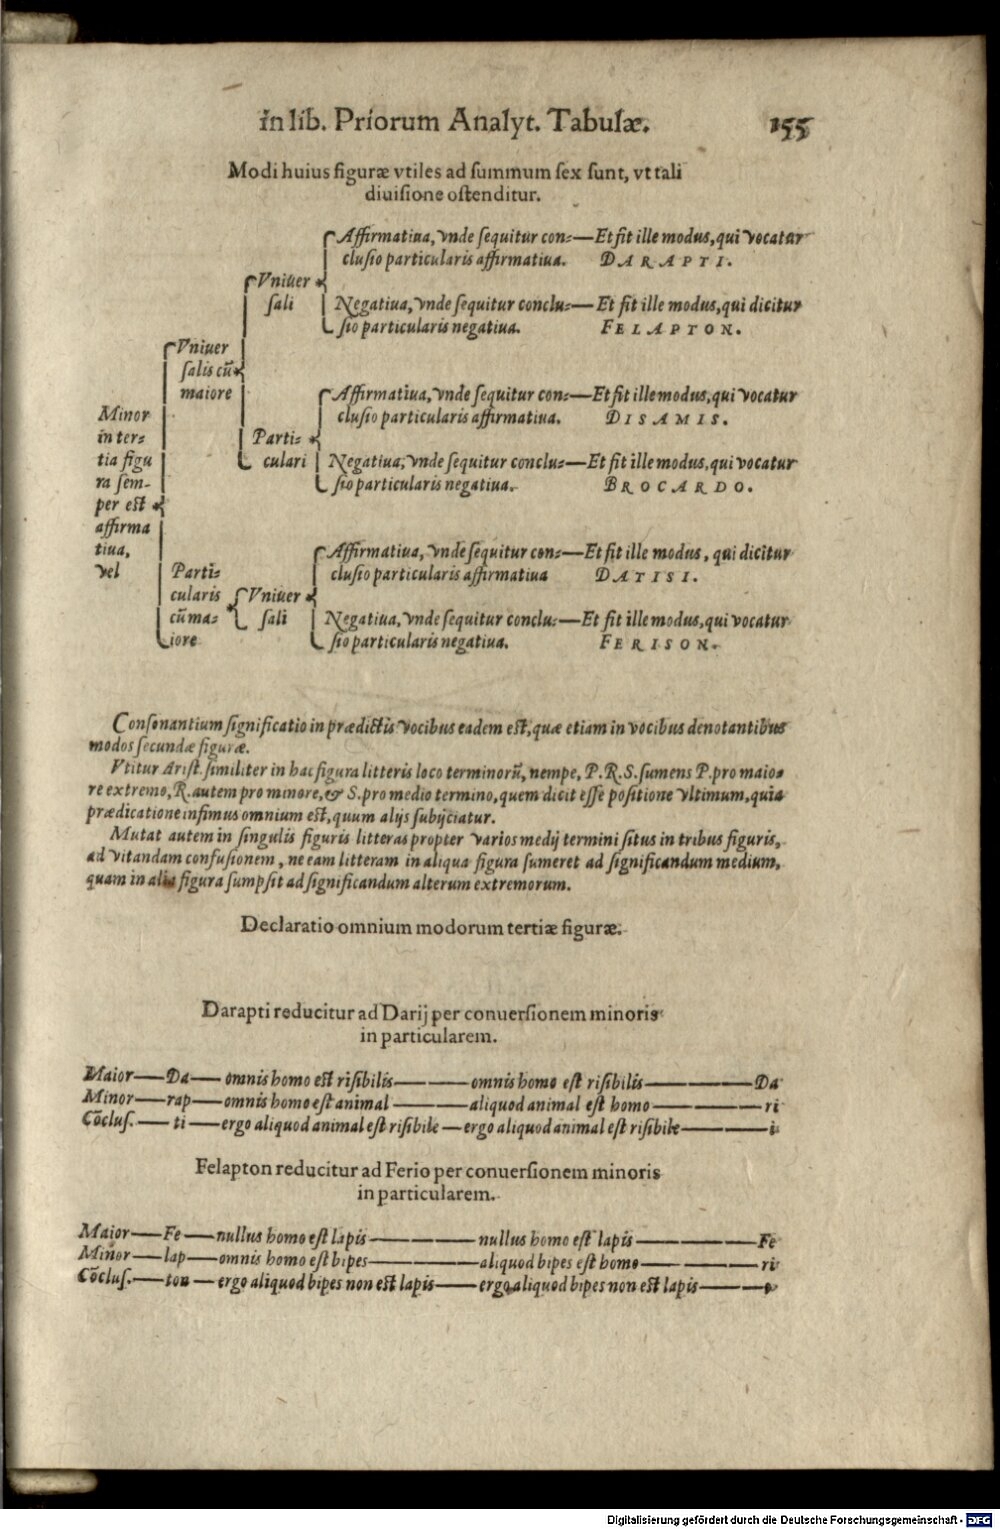 in lib. Priorum Analyt. Tabulæ. 155
Modi huius figuræ vtiles ad summum sex sunt, vt tali
diuisione ostenditur.
Affirmatiua, vnde sequitur con=—Et fit ille modus, qui vocatur
clusio particularis affirmatiua. DARAPTI.
Vniuer
sali
Negatiua, vnde sequitur conclu=—Et fit ille modus, qui dicitur
sio particularis negatiua. FELAPTON.
Vniuer
salis cũ
maiore
Affirmatiua, vnde sequitur con=—Et fit ille modus, qui vocatur
clusio particularis affirmatiua. DISAMIS.
Parti=
culari
Negatiua, vnde sequitur conclu=—Et fit ille modus, qui vocatur
sio particularis negatiua. BROCARDO.
Minor
in ter=
tia figu
ra sem-
per est
affirma
tiua,
vel
Affirmatiua, vnde sequitur con=—Et fit ille modus, qui dicitur
clusio particularis affirmatiua DATISI.
Parti=
cularis
cũ ma=
iore
Vniuer
sali
Negatiua, vnde sequitur conclu=—Et fit ille modus, qui vocatur
sio particularis negatiua. FERISON.
Consonantium significatio in prædictis vocibus eadem est, quæ etiam in vocibus denotantibus
modos secundæ figuræ.
Vtitur Arist. similiter in hac figura litteris loco terminorũ, nempe, P.R.S. sumens P. pro maio=
re extremo, R. autem pro minore, & S. pro medio termino, quem dicit esse positione vltimum, quia
prædicatione infimus omnium est, quum alijs subijciatur.
Mutat autem in singulis figuris litteras propter varios medij termini situs in tribus figuris,
ad vitandam confusionem, ne eam litteram in aliqua figura sumeret ad significandum medium,
quam in alia figura sumpsit ad significandum alterum extremorum.
Declaratio omnium modorum tertiæ figuræ.
Darapti reducitur ad Darij per conuersionem minoris
in particularem.
Maior—Da—omnis homo est risibilis—omnis homo est risibilis—Da
Minor—rap—omnis homo est animal—aliquod animal est homo—ri
Cõclus.—ti—ergo aliquod animal est risibile—ergo aliquod animal est risibile—i
Felapton reducitur ad Ferio per conuersionem minoris
in particularem.
Maior—Fe—nullus homo est lapis—nullus homo est lapis—Fe
Minor—lap—omnis homo est bipes—aliquod bipes est homo—ri
Cõclus.—ton—ergo aliquod bipes non est lapis—ergo aliquod bipes non est lapis—o
Digitalisierung gefördert durch die Deutsche Forschungsgemeinschaft - DFG